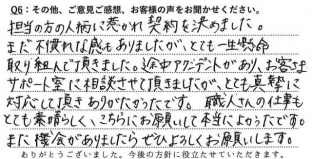 Q6：その他、ご意見ご感想、お客様の声をお聞かせください。
担当の方の人柄に惹かれ契約を決めました。
まだ不慣れな感もありましたが、とても一生懸命
取り組んで頂きました。途中アクシデントがあり、お客さま
サポート室に相談させて頂きましたが、とても真摯に
対応して頂きありがたかったです。職人さんの仕事も
とても素晴らしく、こちらにお願いして本当によかったです。
また機会がありましたらぜひよろしくお願いします。
ありがとうございました。今後の方針に役立たせていただきます。